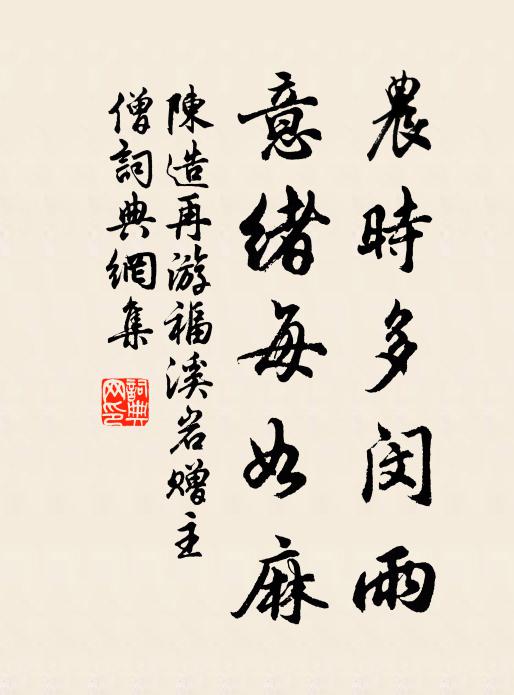 農時多閔雨
意緒每如麻
陳造再游福溪岩贈主
僧詞典網集
詞典网印